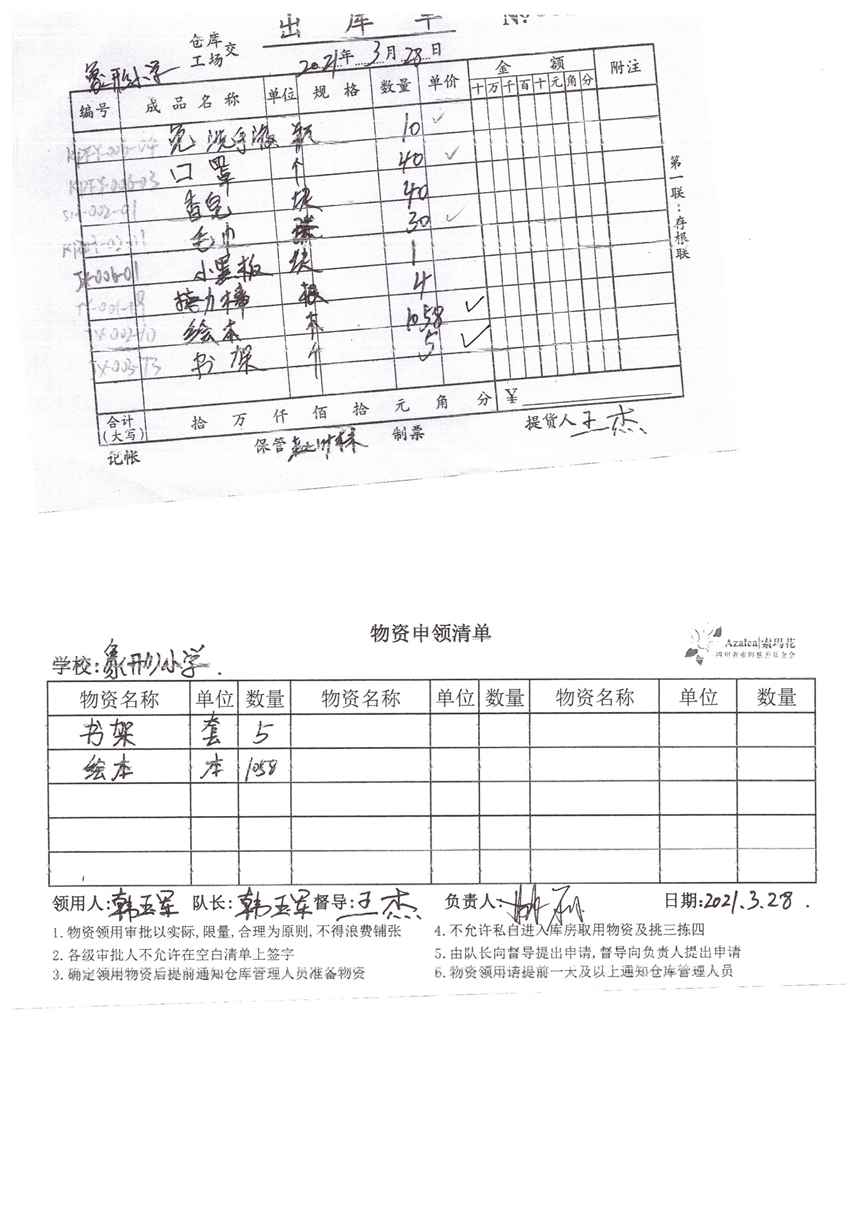 出 库 单
仓库
工场 交
2021年 3月 28日
象形小学
编号 成品名称 单位 规格 数量 单价 金额 附注
十 万 千 百 十 元 角 分
免洗手液 瓶 10
口罩 个 40
香皂 块 40
毛巾 30
小黑板 块 1
JX-006-01
接力棒 根 4
绘本 本 1058
书架 个 5
第一联:存根联
合计
(大写) 拾 万 仟 佰 拾 元 角 分 ¥
记帐 保管 制票 提货人 王杰
物资申领清单
Azalea|索玛花
学校:象(形)小学.
物资名称 单位 数量 物资名称 单位 数量 物资名称 单位 数量
书架 套 5
绘本 本 1058
领用人:韩玉军 队长:韩玉军 督导:王杰 负责人: 日期:2021.3.28.
1.物资领用审批以实际,限量,合理为原则,不得浪费铺张 4.不允许私自进入库房取用物资及挑三拣四
2.各级审批人不允许在空白清单上签字 5.由队长向督导提出申请,督导向负责人提出申请
3.确定领用物资后提前通知仓库管理人员准备物资 6.物资领用请提前一天及以上通知仓库管理人员